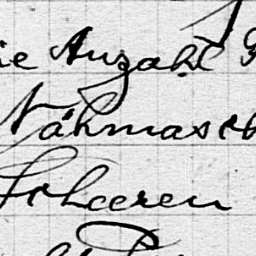 ie Anzahl
Nähmasch
Scheeren